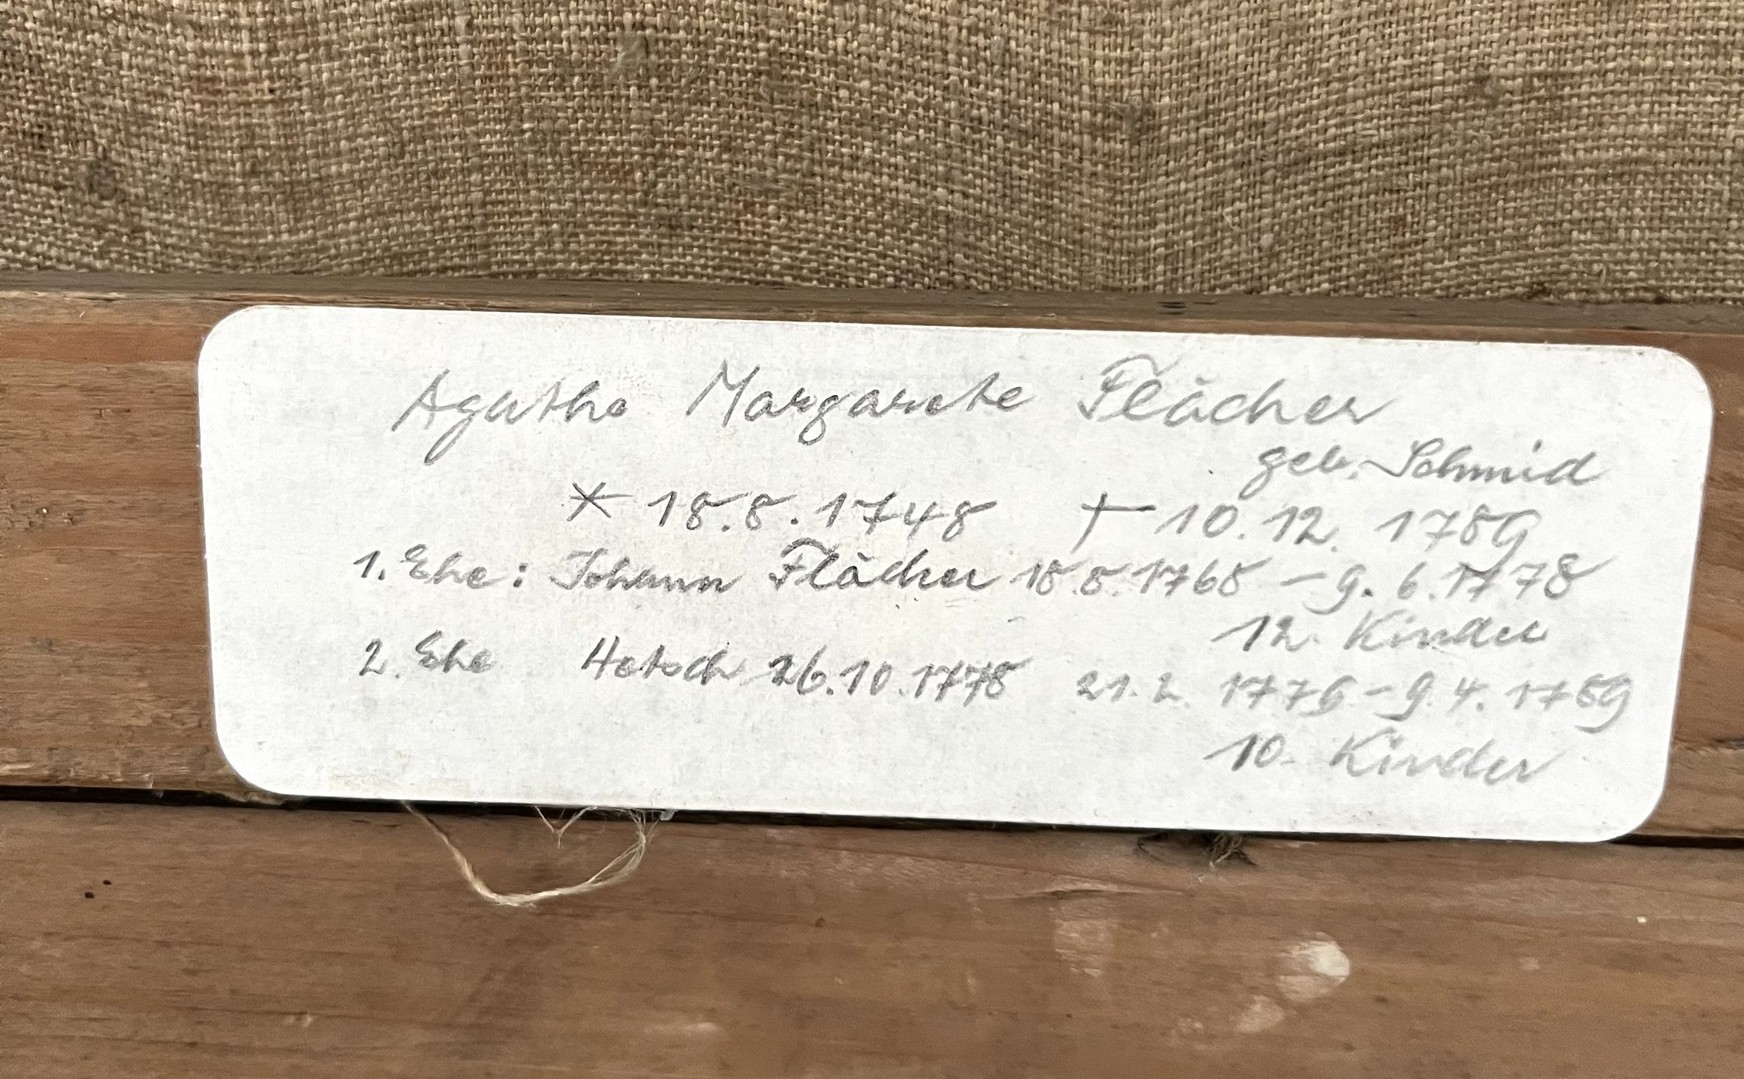 Agathe Margarete Flächer
geb. Schmid
* 18.8.1748 † 10.12.1789
1. Ehe: Johann Flächer 18.8.1768 – 9.6.1778
12. Kinder
2. Ehe 26.10.1778 21.2. – 9.4.1789
10. Kinder